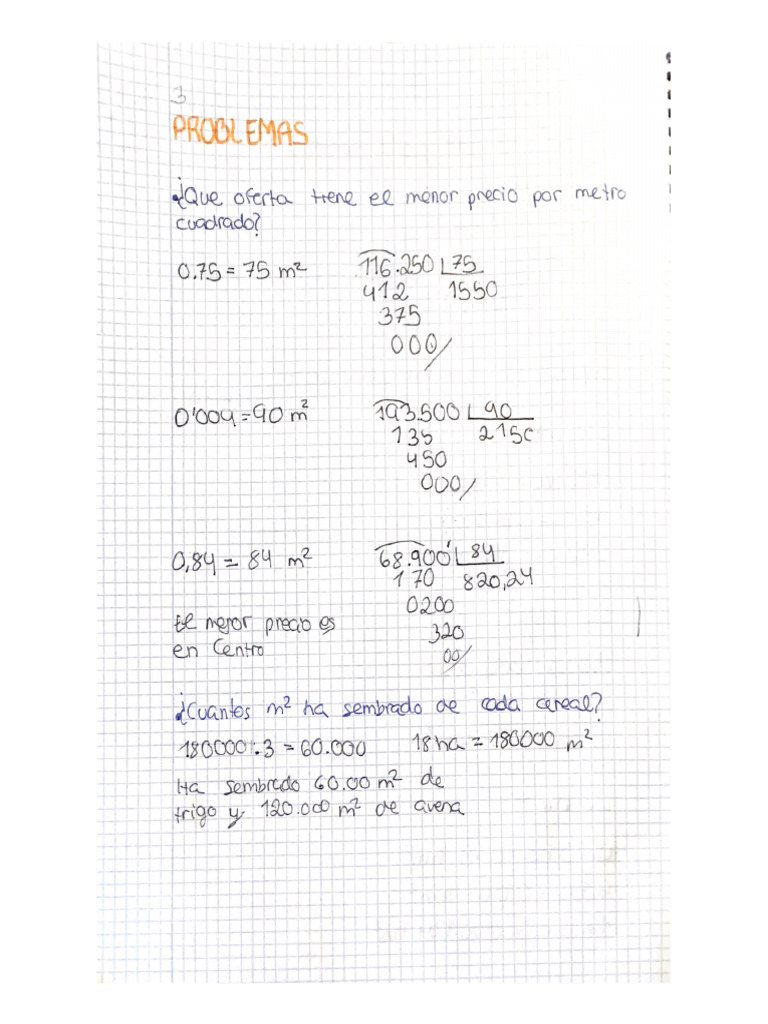 3
PROBLEMAS
¿Que oferta tiene el menor precio por metro
cuadrado?
0.75 = 75 m² 116.250 75
412 1550
375
000/
0'004 = 90 m² 193.500 90
135 2150
450
000/
0,84 = 84 m² 68.900' 84
170 820,24
0200
320
00/
El mejor precio es
en Centro
¿Cuantos m² ha sembrado de cada cereal?
180000:3 = 60.000 18 ha = 180000 m²
Ha sembrado 60.00 m² de
trigo y 120.000 m² de avena